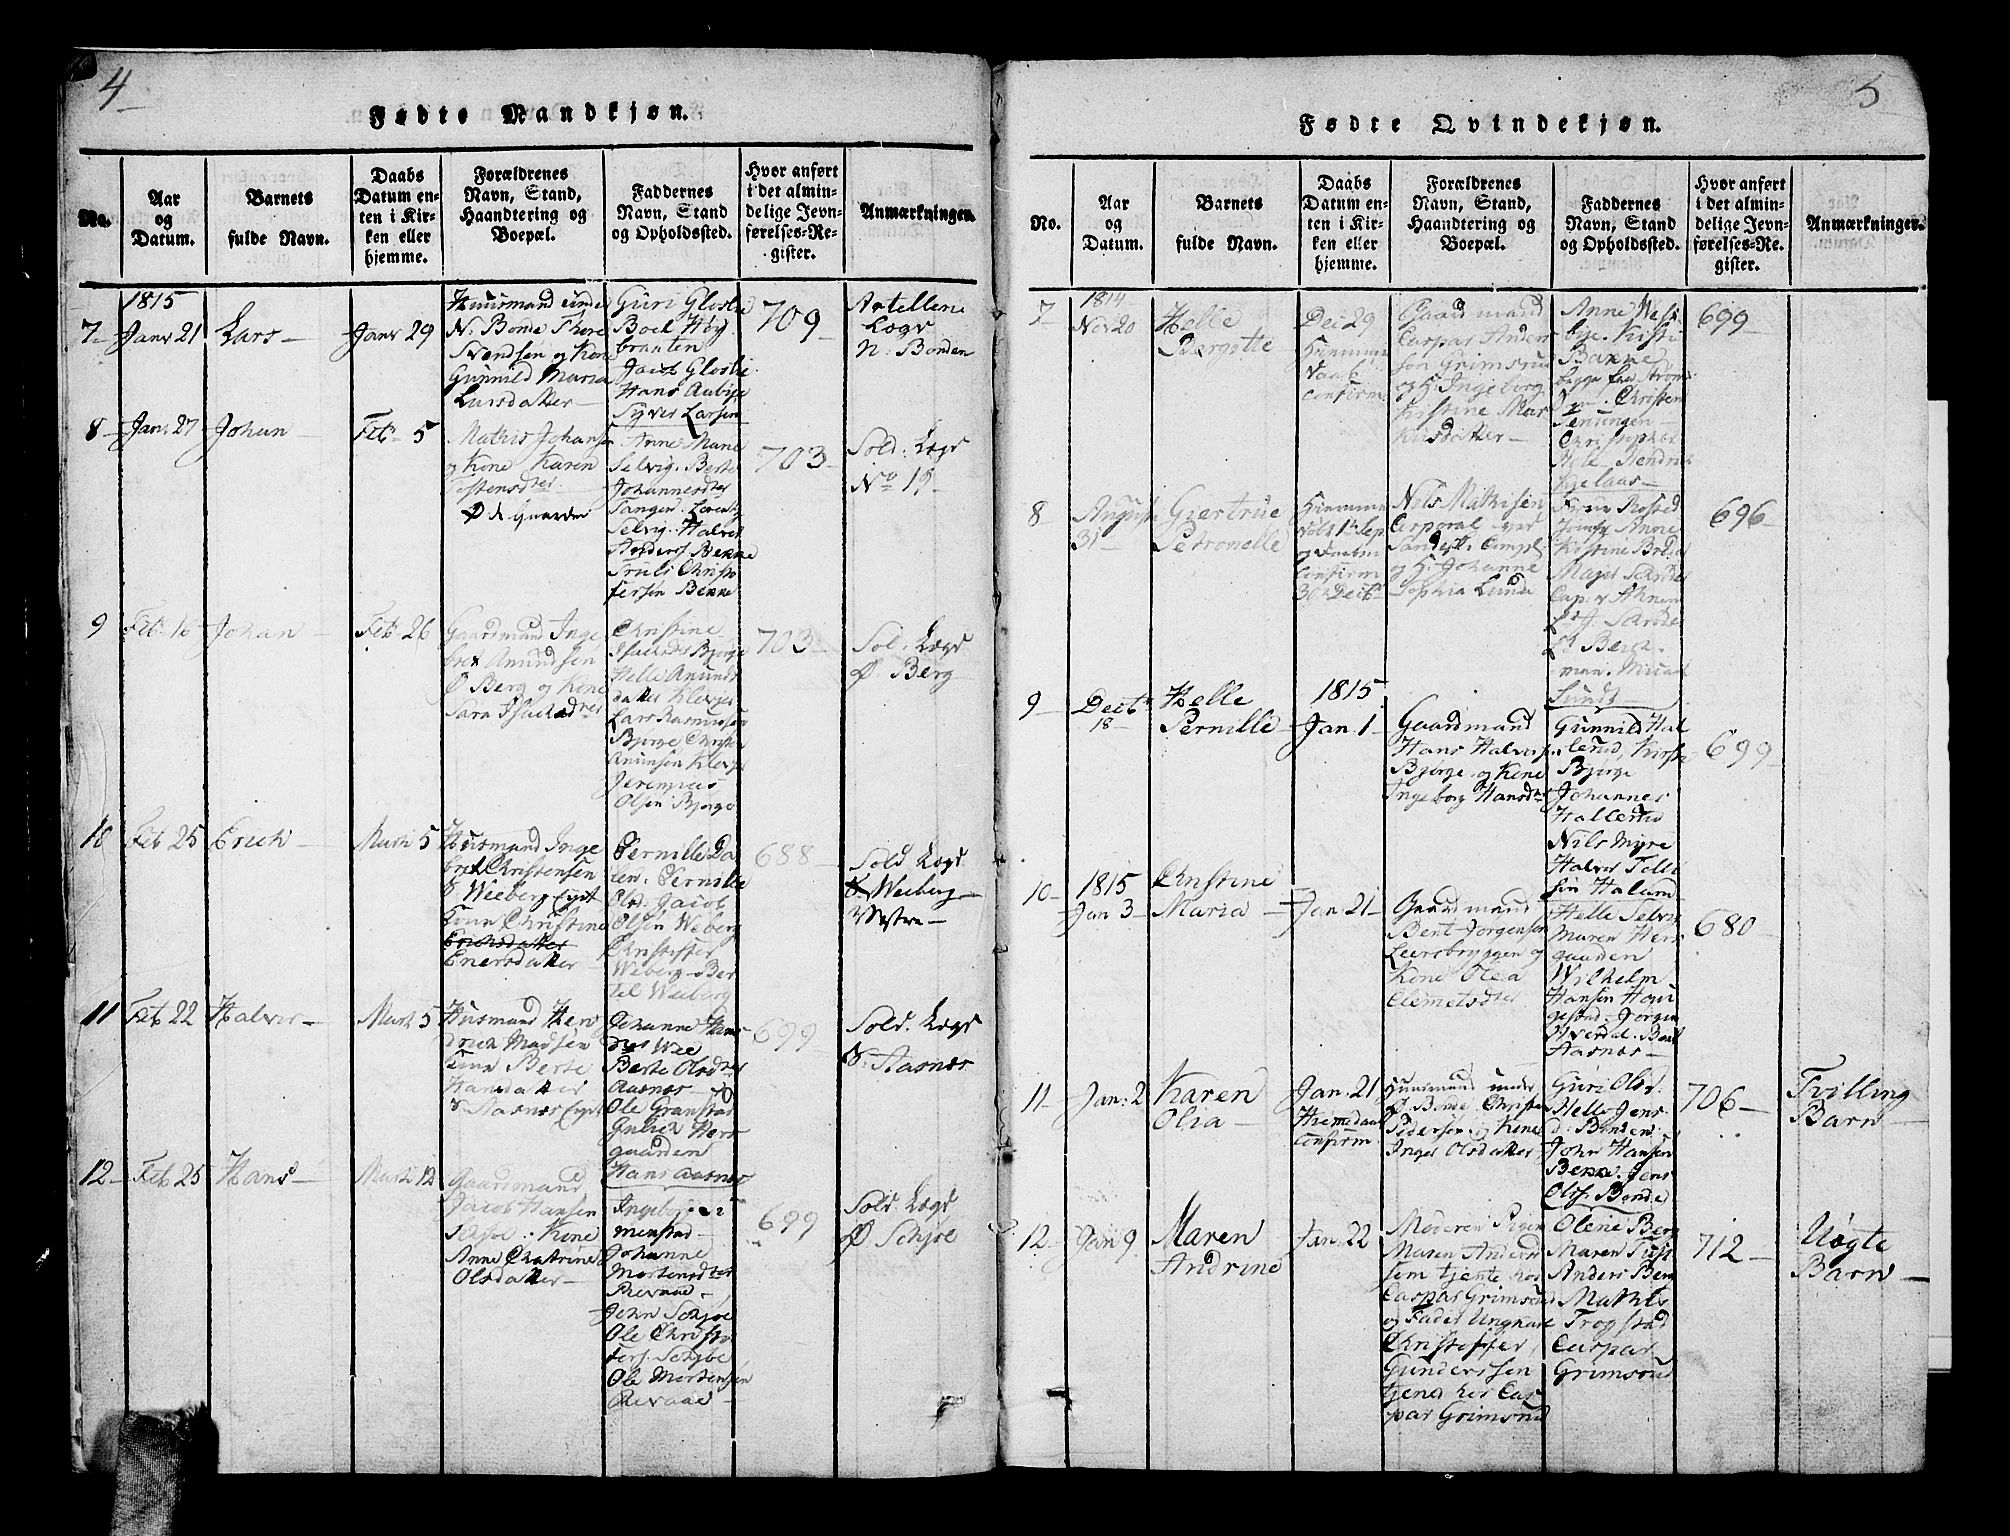 4
Fødte Mandkjøn.
No.
Aar
og
Datum.
Barnets
fulde Navn.
Daabs
Datum en-
ten i Kir-
ken eller
hjemme.
Forældrenes
Navn, Stand,
Haandtering og
Boepæl.
Faddernes
Navn, Stand
og Opholdssted.
Hvor anført
i det almin-
delige Jevn-
førelses-Re-
gister.
Anmærkninger.
1815
7
Janv 21
Lars
Janv 29
Huusmand unde
N: Bonde Thore
Svendsen og Kone
Gunnild Maria
Larsdatter
Guri Gloslie
Boel Høy
branten
Jacob Gloslie
Hans Aabye
Syver Larsen
709
Artellerie
Lægd
N: Bonden
8
Jan: 27
Johan
Feb: 5
Mathis Johansen
og Kone Karen
Ø de Gaarder
Anne Marie
Selvig. Berte
Johannesdter
Tangen. Lorentz
Selvig. Halvor
Anders: Bekke
Truls Christo
fersen Bekke
703
Sold: Lægd
No 15
9
Feb 16
Johan
Feb 26
Gaardmand Inge
bret Amundsen
Ø Berg og Kone
Sara Isachsdter
Christine
Isachsdr Bjørge
Helle Amunds
datter Klevjer
Lars Rasmusen
Bjørge Christen
Amunsen Klevje
Jeremias
Olsen Bjørge
703
Sol. Lægd
Ø Berg
10
Feb 25
Erich
Marti 5
Huusmand Inge
bret Christensen
V Weeberg Eyet
Konn Christine
Erichsdatter
Enersdatter
Pernille Da
len. Pernille
Olsd. Jacob
Olsen Weberg
Christoffer
Weberg Ber
tel Weiberg
688
Sold Lægd
Weeberg
Vestre
11
Feb 22
Halvor
Marti 5
Huusmand Hen
drich Madsen
Konn Berte
Hansdatter
V Aasnæs Eyet
Johanne Hans
dter Wee
Berte Olsdter
Aasnæs
Ole Granstad
Gulich Herr
gaarden
Hans Aasnæs
699
Sold. Lægd
V. Aasnæs
12
Feb 25
Hans
Marti 12
Gaardmand
Jacob Hansen
Kone
Anne Chatrine
Olsdatter
Ingeborg
menstad
Johanne
Mortensdter
Revaae
John Schjøe
Ole Christo
fers. Schjøe
Ole Mortensen
Revaae
699
Sold. Lægd
Ø Schjøe
5
Fødte Qvindekjøn.
No.
Aar
og
Datum.
Barnets
fulde Navn.
Daabs
Datum en-
ten i Kir-
ken eller
hjemme.
Forældrenes
Navn, Stand,
Haandtering og
Boepæl.
Faddernes
Navn, Stand
og Opholdssted.
Hvor anført
i det almin-
delige Jevn-
førelses-Re-
gister.
Anmærkninger.
1814
7
Nov 20
Helle
Bergitte
Dec 29
Hiemme
Daab
confirm
Gaardmand
Caspar Ander
son Grimsrud
og H. Ingeborg
Kristine Mar
kusdatter
Anne Vest
bye. Kirsti
Bakke
Christen
Christopher
Hole Hendrich
699
8
August
31
Giertrue
Petronelle
Hiemme
Døbt 1te Sep
confirm
30te Decbr
Nils Mathisen
Corporal ved
og H. Johanne
Sophia Lund
Anne
Kirstine
Major Schrøder
Cap. v
Lt Schrøder
Lt Berg
man.
Lund
696
9
Decbr
18
Helle
Pernille
1815
Jan 1
Gaardmand
Hans Halvorsen
Bjørge og Kone
Ingeborg Hansdtr
Gunnild Hal
lerud, Kirsti
Bjørge
Johannes
Hallerud
Nils Myre
Halvor Tolle
sen Halund
699
10
1815
Jan 3
Christine
Maria
Jan. 21
Gaardmand
Bent Jorgensen
Leersbryggen og
Kone Olea
Clemetsdter
Helle Selvig
Maren Herr
gaarden
Wilhelm
Hansen Hou
gestad. Jorgen
Overdal. Bent
Aasnæs
680
11
Jan: 2
Karen
Olia
Jan. 21
Hiemdaab
confirm
Huusmand under
Ø. Bonde. Christen
Pedersen og Kone
Inger Olsdatter
Guri Olsd.
Helle Jens
d. Bonden
John Hansen
Bekke. Jens
Ols. Bonded
706
Tvilling
Barn
12
Jan 9
Maren
Andrine
Jan. 22
Moderen Pigen
Maren Andersd
som tjente hos
Caspar Grimsrud
og Fader Ungkarl
Christoffer
Gunderssen
tjener hos Cas
par Grimsrud
Olene Berg
Maren
Anders Berg
Mathis
Trogstad
Caspar
Grimsrud
712
Uægte
Barn